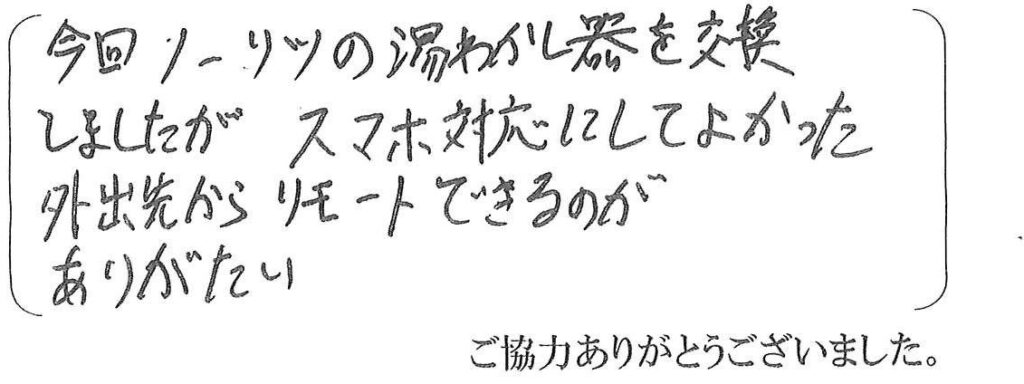 今回ノーリツの湯わかし器を交換
しましたが スマホ対応にしてよかった
外出先からリモートできるのが
ありがたい
ご協力ありがとうございました。